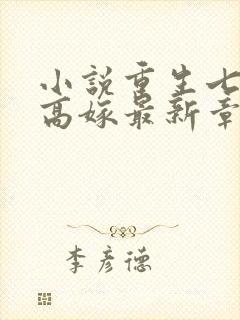 小說重生七
高嫁最新章
李彥德